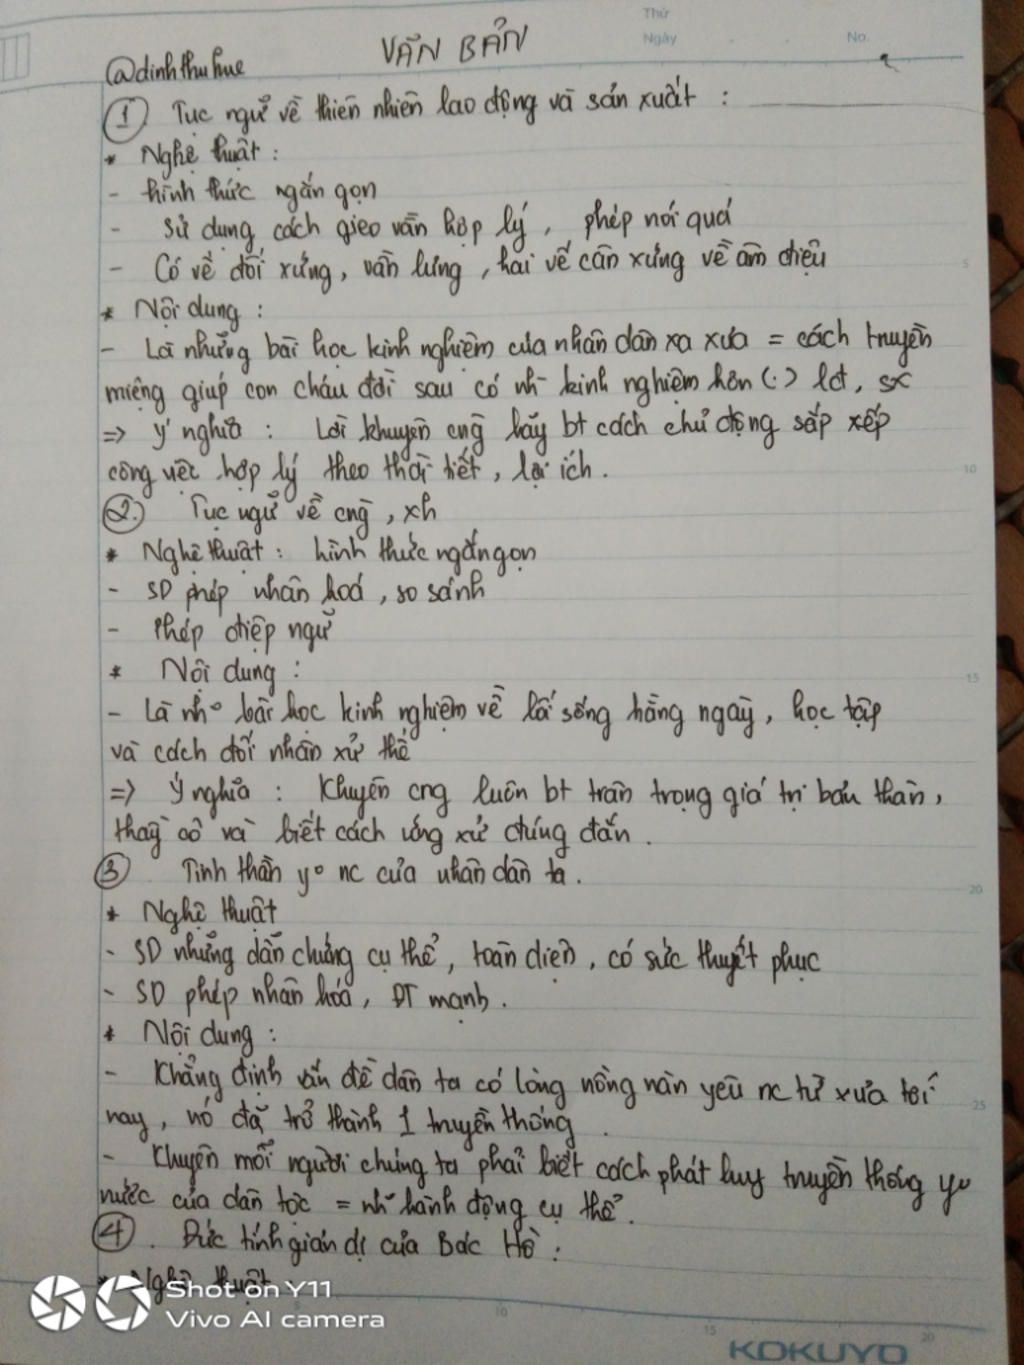 Thứ
Ngày . . No.
VĂN BẢN
@dinhthuhue
① Tục ngữ về thiên nhiên lao động và sản xuất :
* Nghệ thuật :
- hình thức ngắn gọn
- Sử dụng cách gieo vần hợp lý , phép nói quá
- Có vế đối xứng, vần lưng , hai vế cân xứng về âm điệu
* Nội dung :
- Là những bài học kinh nghiệm của nhân dân xa xưa = cách truyền
miệng giúp con cháu đời sau có nh~ kinh nghiệm hơn (.) lđ, sx
=> ý nghĩa : Lời khuyên cng hãy bt cách chủ động sắp xếp
công việc hợp lý theo thời tiết , lợi ích .
②. Tục ngữ về cng , xh
* Nghệ thuật : hình thức ngắn gọn
- SD phép nhân hoá , so sánh
- Phép điệp ngữ
* Nội dung :
- Là nh~ bài học kinh nghiệm về lối sống hằng ngày , học tập
và cách đối nhân xử thế
=> Ý nghĩa : Khuyên cng luôn bt trân trọng giá trị bản thân ,
thầy cô và biết cách ứng xử đúng đắn .
③ Tinh thần yo nc của nhân dân ta .
* Nghệ thuật
- SD những dẫn chứng cụ thể , toàn diện , có sức thuyết phục
- SD phép nhân hóa , ĐT mạnh .
* Nội dung :
- Khẳng định vấn đề dân ta có lòng nồng nàn yêu nc từ xưa tới
nay , nó đã trở thành 1 truyền thống .
- Khuyên mỗi người chúng ta phải biết cách phát huy truyền thống yo
nước của dân tộc = nh~ hành động cụ thể .
④ . Đức tính giản dị của Bác Hồ :
* Nghệ thuật
Shot on Y11
Vivo AI camera
5
10
15
20
25
5
10
15
20
KOKUYO